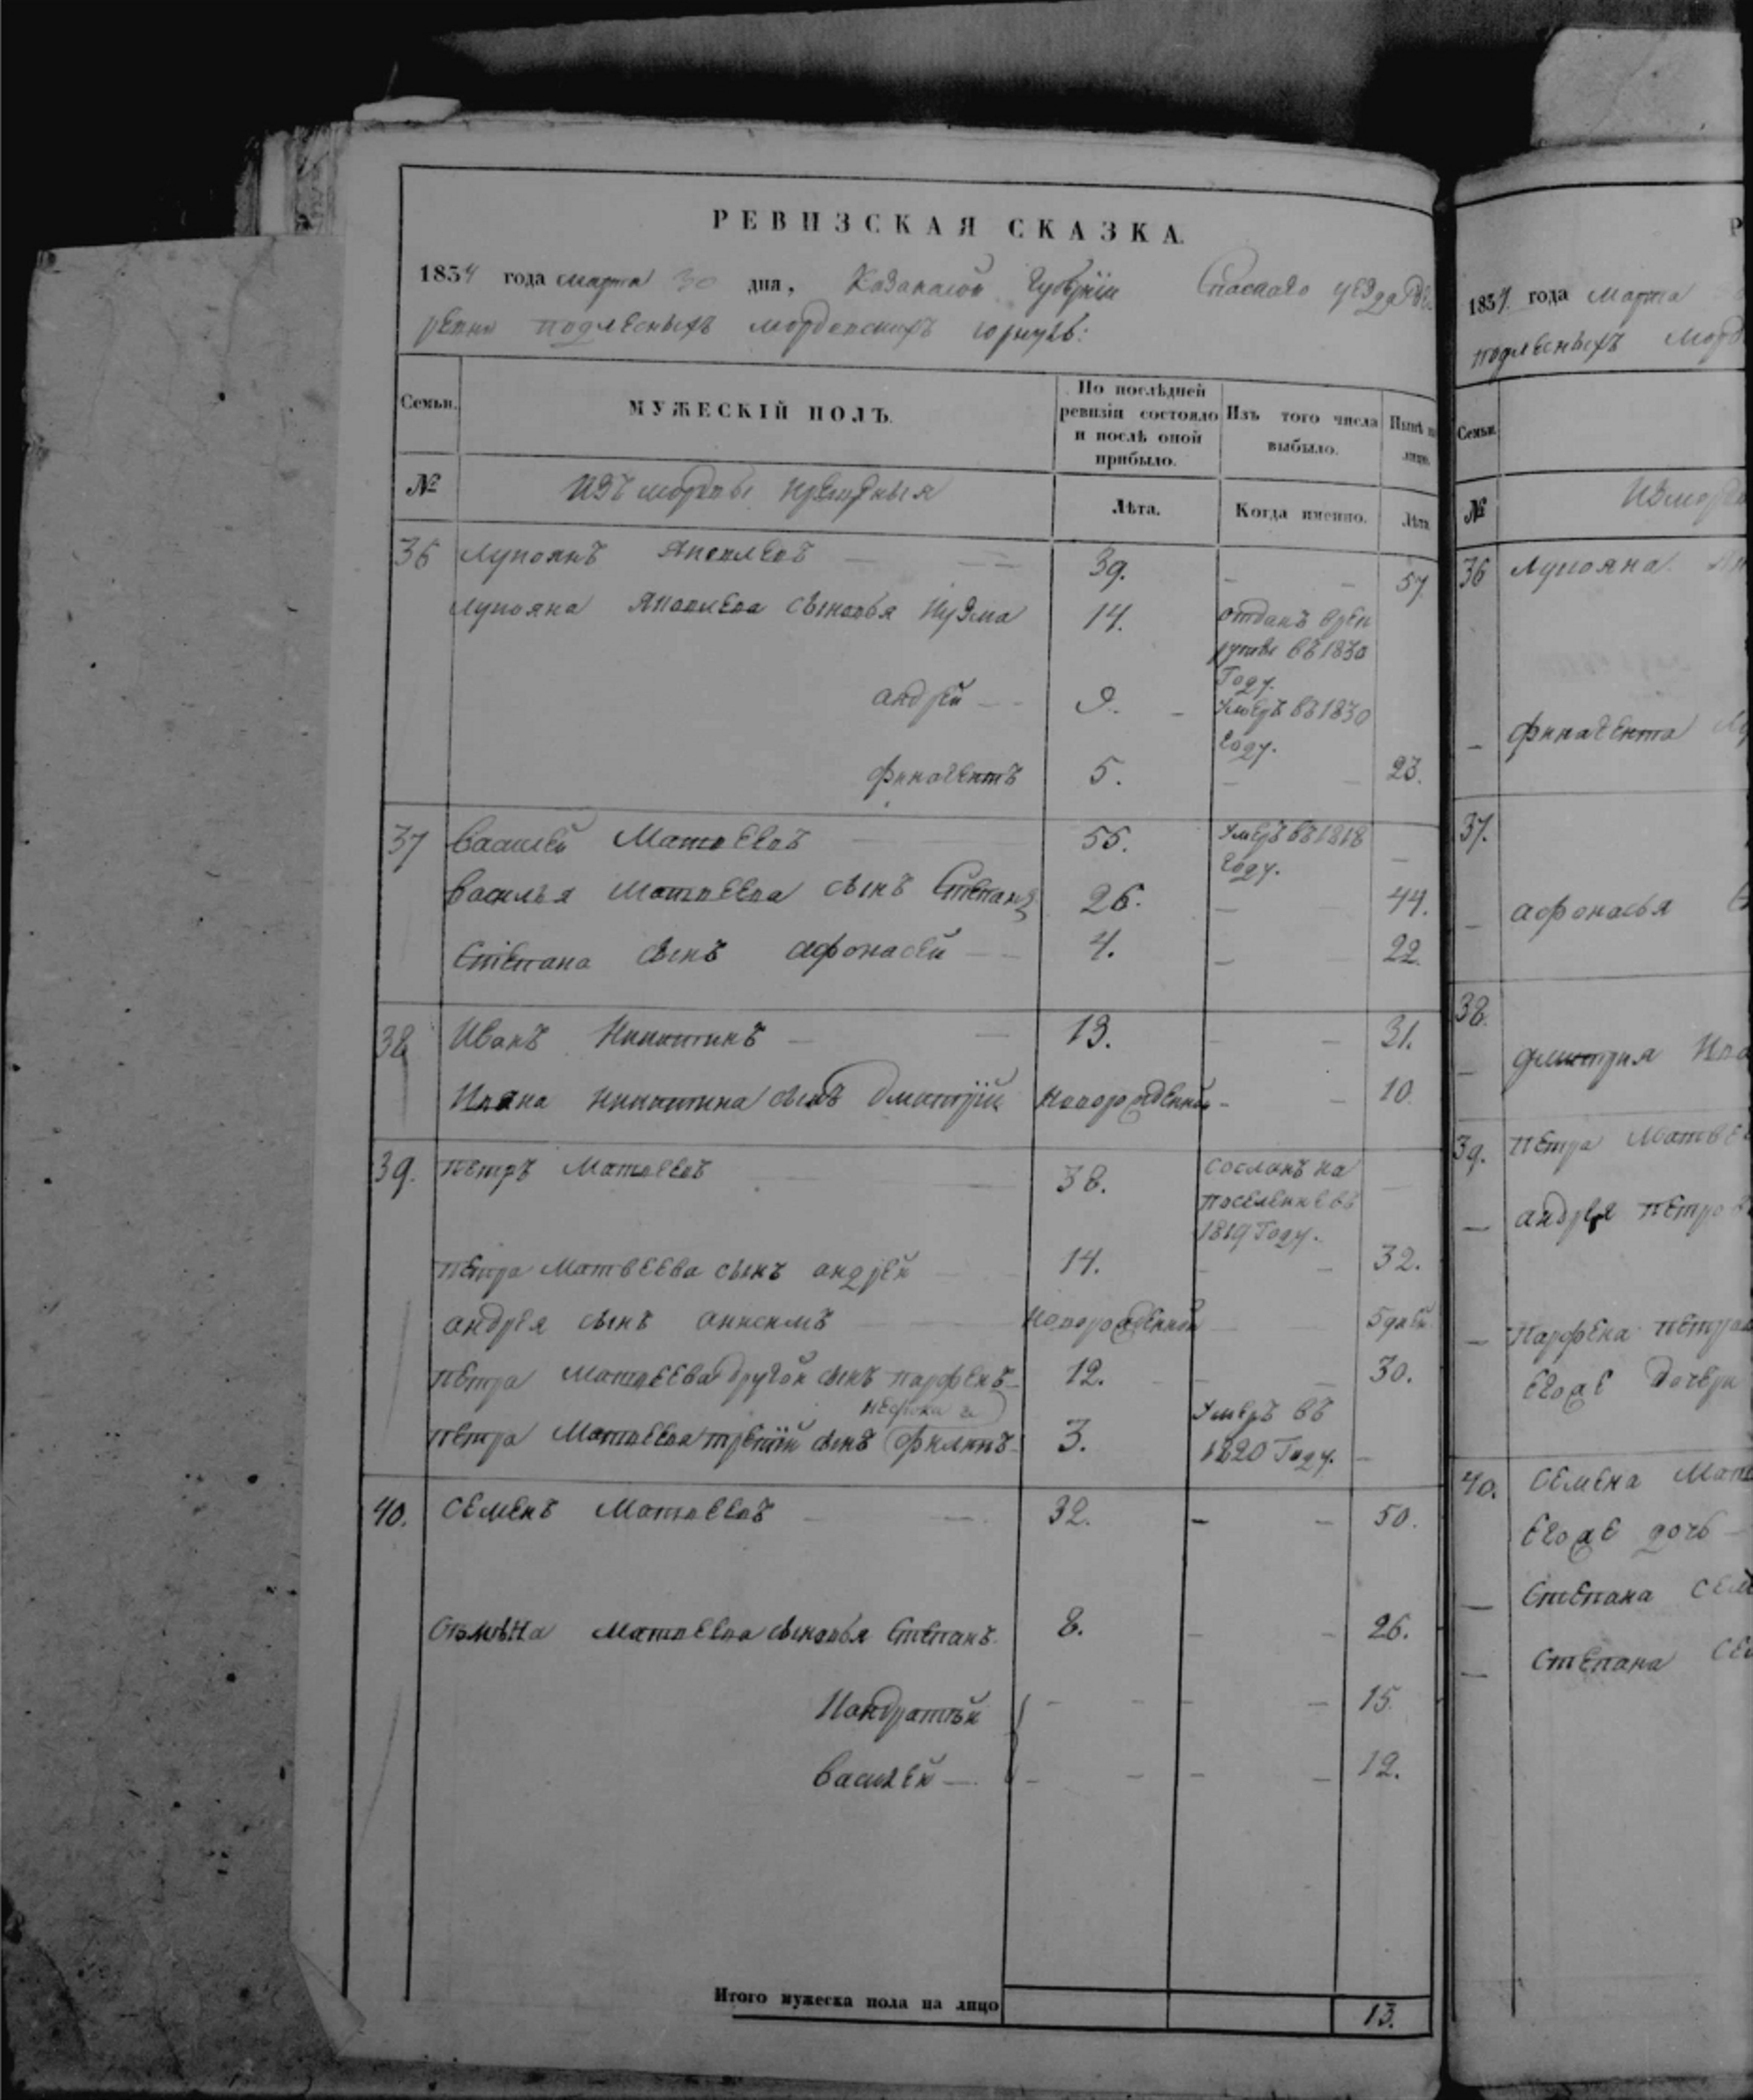 РЕВИЗСКАЯ СКАЗКА.
1834 года марта 30 дня, Казанской Губернiи Спаскаго уезда де
ревни подлесныхъ мордовскихъ юркулъ:
Семьи. МУЖЕСКIЙ ПОЛЪ. По послѣдней ревизiи состояло и послѣ оной прибыло. Изъ того числа выбыло. Нынѣ на лицо.
№ Изъ мордвы крещеныя Лѣта. Когда именно. Лѣта.
36 Лупоянъ Яковлевъ 39. 57
Лупояна Яковлева сыновья Кузма 14. отданъ врек
рутвы въ 1830
Году.
андрей 9. умеръ въ 1830
году.
финогентъ 5. 23.
37 Василей Матвеевъ 55. умеръ въ 1818
году.
Василья Матвеева сынъ Степанъ 26. 44.
Степана сынъ афонасей 4. 22.
38 Иванъ Никитинъ 13. 31.
Ивана никитина сынъ Дмитрiй новорожденной 10
39. петръ Матвеевъ 38. сосланъ на
поселенiе въ
1819 Году.
петра Матвеева сынъ андрей 14. 32.
андрея сынъ анисимъ новорожденной 5 дней
петра Матвеева другой сынъ парфенъ 12. 30.
петра Матвеева третiй сынъ филипъ 3. Умеръ въ
1820 Году.
40. Семенъ Матвеевъ 32. 50.
Семѣна Матвеева сыновья Степанъ 8. 26.
Кондратей 15.
василей 12.
Итого мужеска пола на лицо 13.
1834 года марта
подлесныхъ морд
Семьи.
№
36 Лупояна
финогента
37.
афонасья
38.
дмитрия Ива
39. петра Матве
андрея петро
Парфена петро
Егоже дочери
40. Семена Мат
Егоже дочь
Степана сем
Степана се